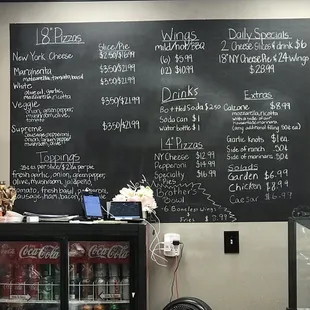 18" Pizzas
Slice/Pie
New York Cheese $2.50/$16.99
Margherita $3.50/$21.99
mozzarella, tomato, basil
White $3.50/$21.99
olive oil, garlic,
mozzarella, ricotta
Veggie $3.50/$21.99
onion, green pepper,
mushroom, olive,
tomato
Supreme $3.50/$21.99
sausage, pepperoni,
onion, green pepper,
mushroom, olive
Toppings
fresh garlic, onion, green pepper
olive, mushroom, jalapeno,
tomato, fresh basil, pepperoni,
sausage, ham, bacon,
Wings
mild/hot/BBQ
(6) $5.99
(12) $10.99
Drinks
Bottled Soda $2.50
Soda Can $1
Water bottle $1
14" Pizzas
NY Cheese $12.99
NY Margherita $14.99
Specialty $16.99
Pies
Brother's
Bowl
6 Boneless wings
& fries $9.99
Daily Specials
2 Cheese Slices & drink $6
18" NY Cheese Pie & 24 wings
$28.99
Extras
Calzone $8.99
mozzarella, ricotta
w/ side of marinara
(any additional filling 50¢ ea)
Garlic knots $1 ea.
Side of marinara 50¢
Side of ranch 50¢
Salads
Garden $6.99
Chicken $8.99
Caesar $6.99
Coca-Cola
Coca-Cola